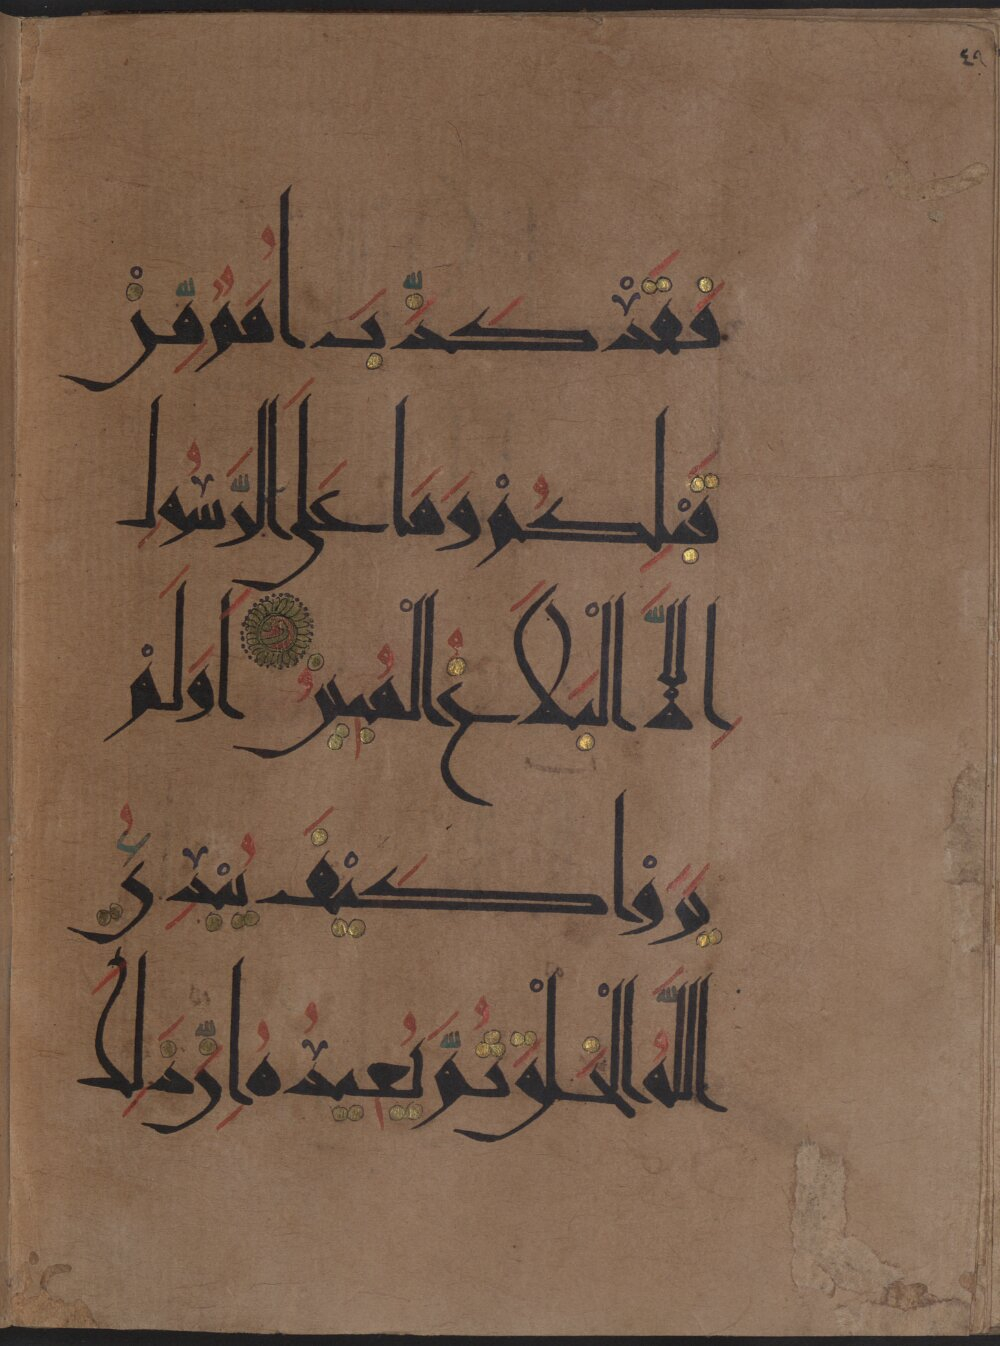 ٤٩
فَقَدْ كَذَّبَ أُمَمٌ مِّنْ
قَبْلِكُمْ وَمَا عَلَى الرَّسُولِ
إِلَّا الْبَلَاغُ الْمُبِينُ أَوَلَمْ
يَرَوْا كَيْفَ يُبْدِئُ
اللَّهُ الْخَلْقَ ثُمَّ يُعِيدُهُ إِنَّ ذَلِكَ